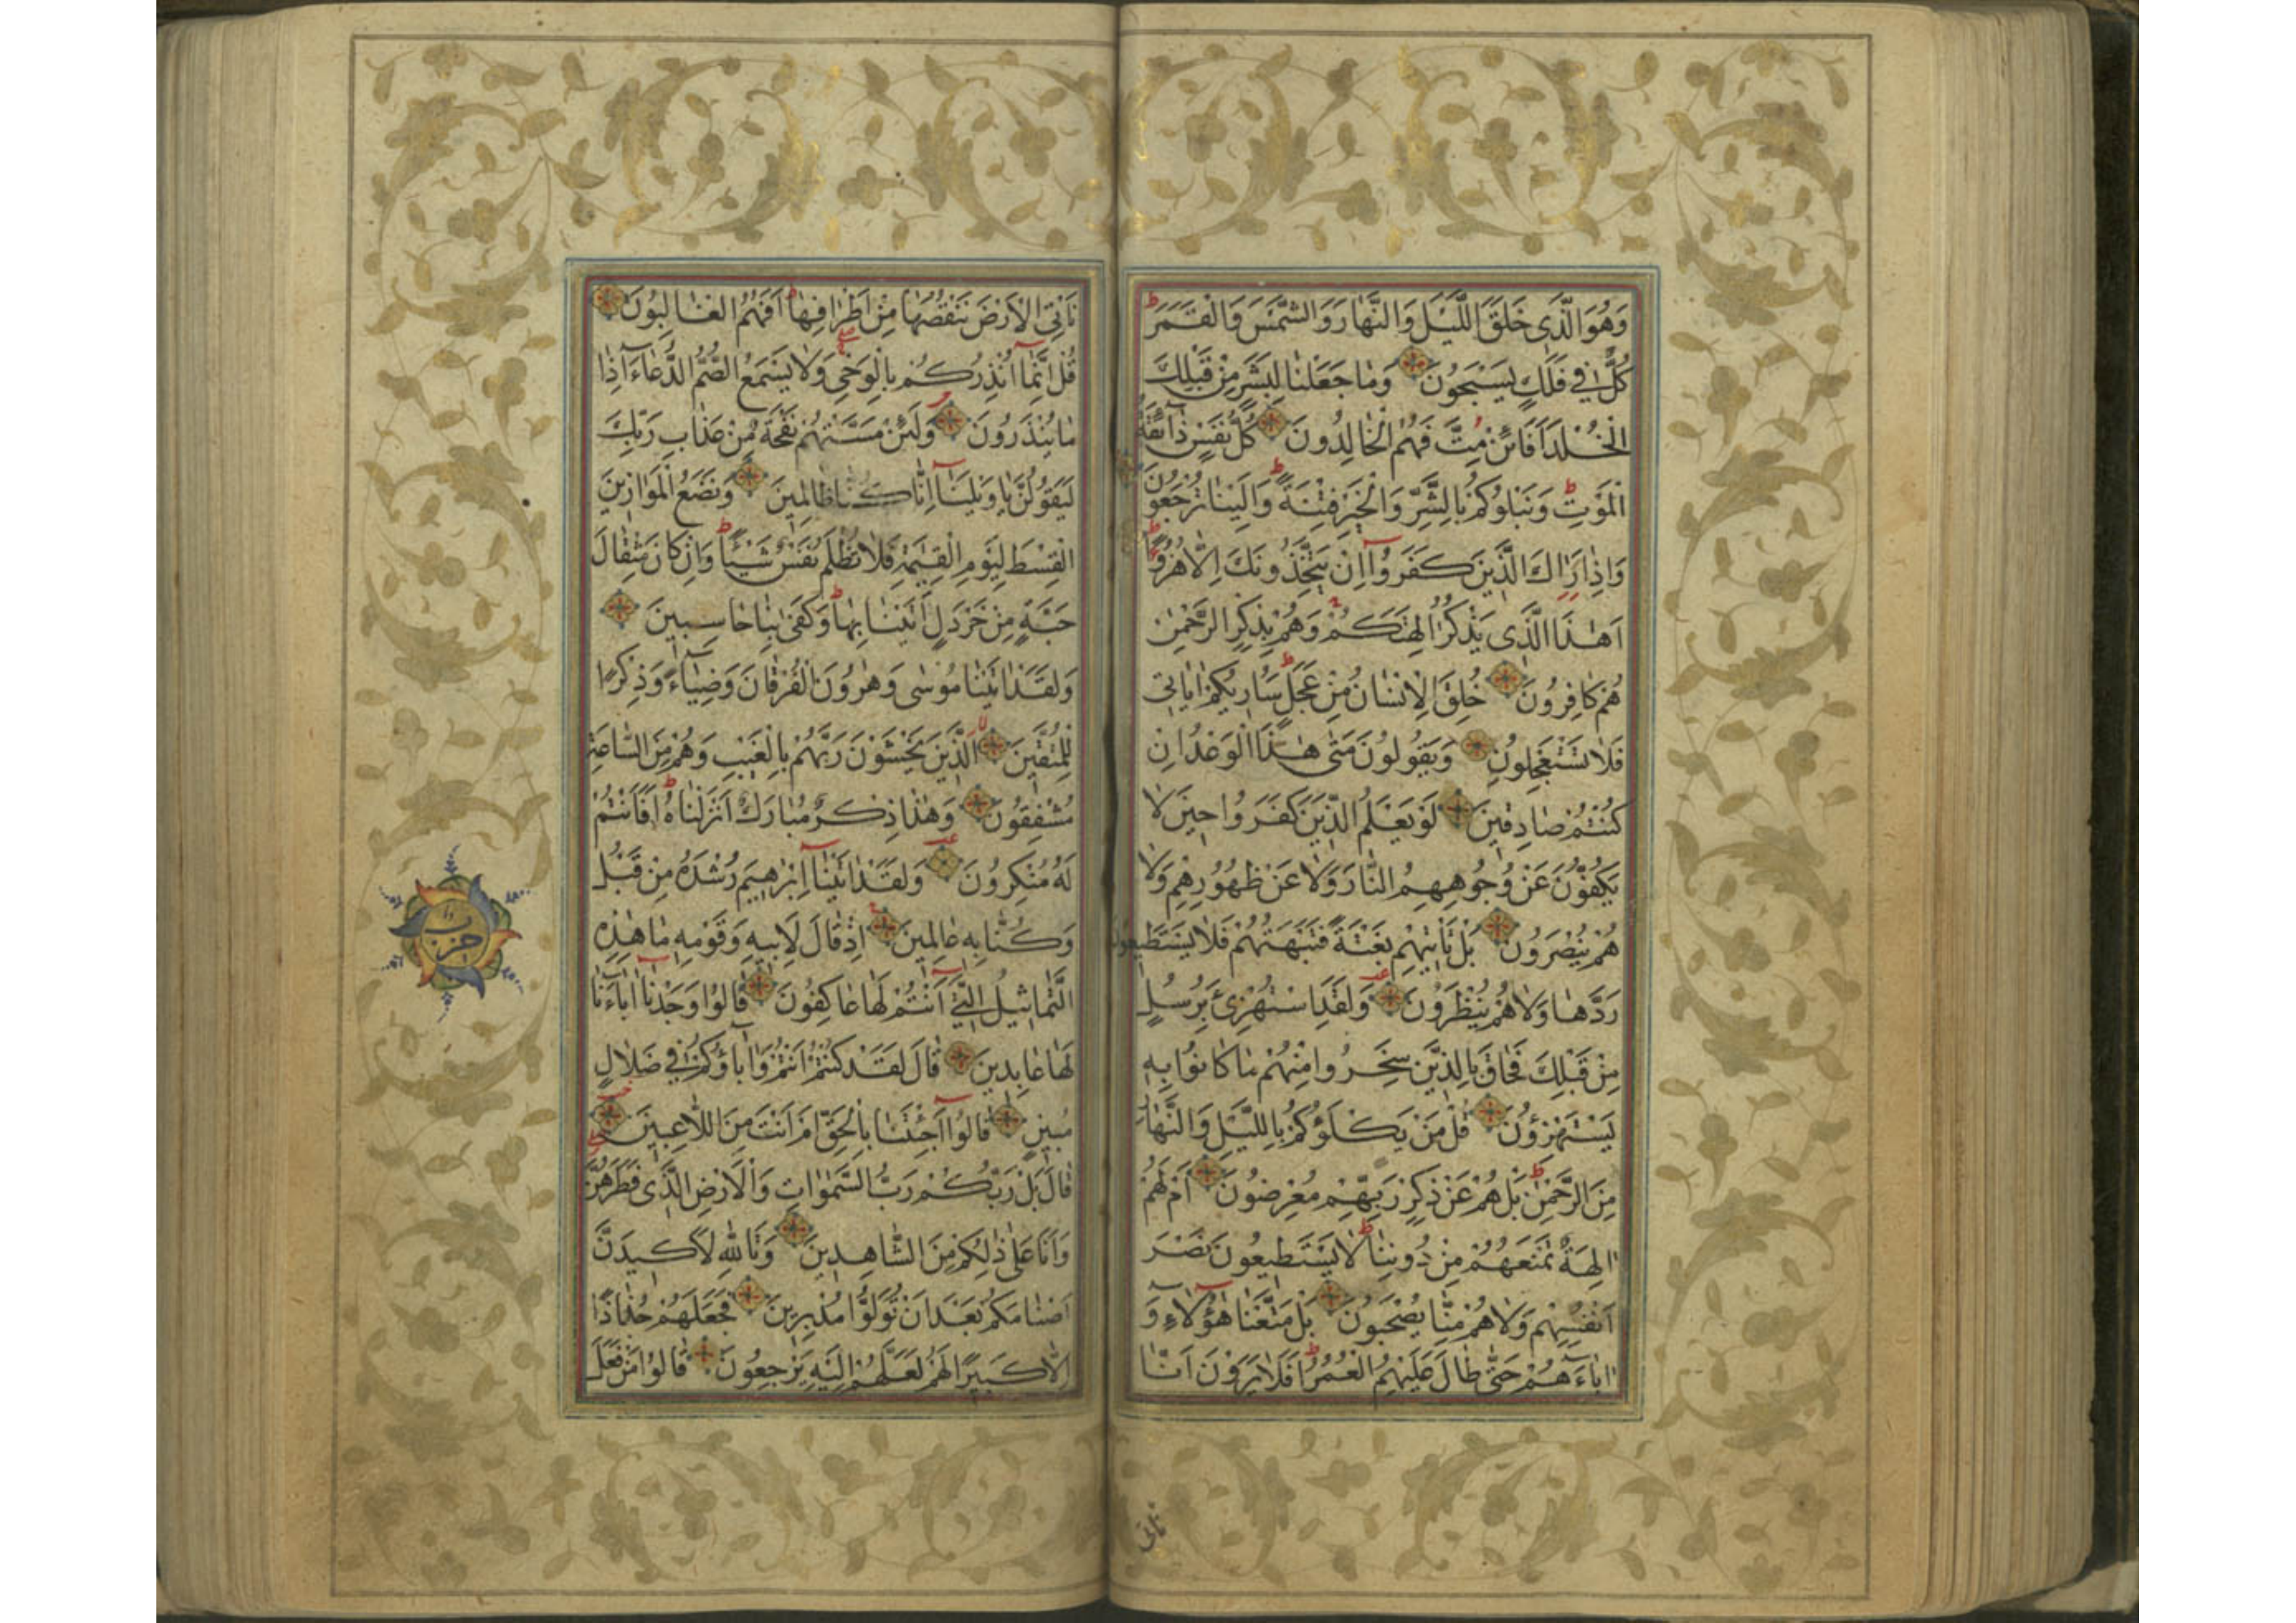 وَهُوَ الَّذِى خَلَقَ اللَّيْلَ وَالنَّهَارَ وَالشَّمْسَ وَالْقَمَرَ ط
كُلٌّ فِى فَلَكٍ يَسْبَحُونَ وَمَا جَعَلْنَا لِبَشَرٍ مِنْ قَبْلِكَ
الْخُلْدَ اَفَائِنْ مِتَّ فَهُمُ الْخَالِدُونَ كُلُّ نَفْسٍ ذَآئِقَةُ
الْمَوْتِ ط وَنَبْلُوكُمْ بِالشَّرِّ وَالْخَيْرِ فِتْنَةً ط وَاِلَيْنَا تُرْجَعُونَ
وَاِذَا رَاٰكَ الَّذِينَ كَفَرُوآ اِنْ يَتَّخِذُونَكَ اِلَّا هُزُوًا ط
اَهٰذَا الَّذِى يَذْكُرُ اٰلِهَتَكُمْ وَهُمْ بِذِكْرِ الرَّحْمٰنِ
هُمْ كَافِرُونَ خُلِقَ الْاِنْسَانُ مِنْ عَجَلٍ ط سَاُرِيكُمْ اٰيَاتِى
فَلَا تَسْتَعْجِلُونِ وَيَقُولُونَ مَتٰى هٰذَا الْوَعْدُ اِنْ
كُنْتُمْ صَادِقِينَ لَوْ يَعْلَمُ الَّذِينَ كَفَرُوا حِينَ لَا
يَكُفُّونَ عَنْ وُجُوهِهِمُ النَّارَ وَلَا عَنْ ظُهُورِهِمْ وَلَا
هُمْ يُنْصَرُونَ بَلْ تَاْتِيهِمْ بَغْتَةً فَتَبْهَتُهُمْ فَلَا يَسْتَطِيعُونَ
رَدَّهَا وَلَا هُمْ يُنْظَرُونَ وَلَقَدِ اسْتُهْزِئَ بِرُسُلٍ
مِنْ قَبْلِكَ فَحَاقَ بِالَّذِينَ سَخِرُوا مِنْهُمْ مَا كَانُوا بِهِ
يَسْتَهْزِؤُنَ قُلْ مَنْ يَكْلَؤُكُمْ بِاللَّيْلِ وَالنَّهَارِ
مِنَ الرَّحْمٰنِ ط بَلْ هُمْ عَنْ ذِكْرِ رَبِّهِمْ مُعْرِضُونَ اَمْ لَهُمْ
اٰلِهَةٌ تَمْنَعُهُمْ مِنْ دُونِنَا ط لَا يَسْتَطِيعُونَ نَصْرَ
اَنْفُسِهِمْ وَلَا هُمْ مِنَّا يُصْحَبُونَ بَلْ مَتَّعْنَا هٰؤُلَآءِ وَ
اٰبَآءَهُمْ حَتّٰى طَالَ عَلَيْهِمُ الْعُمُرُ ط اَفَلَا يَرَوْنَ اَنَّا
نَاْتِى الْاَرْضَ نَنْقُصُهَا مِنْ اَطْرَافِهَا ط اَفَهُمُ الْغَالِبُونَ
قُلْ اِنَّمَآ اُنْذِرُكُمْ بِالْوَحْىِ وَلَا يَسْمَعُ الصُّمُّ الدُّعَآءَ اِذَا
مَا يُنْذَرُونَ وَلَئِنْ مَسَّتْهُمْ نَفْحَةٌ مِنْ عَذَابِ رَبِّكَ
لَيَقُولُنَّ يَا وَيْلَنَآ اِنَّا كُنَّا ظَالِمِينَ وَنَضَعُ الْمَوَازِينَ
الْقِسْطَ لِيَوْمِ الْقِيٰمَةِ فَلَا تُظْلَمُ نَفْسٌ شَيْئًا ط وَاِنْ كَانَ مِثْقَالَ
حَبَّةٍ مِنْ خَرْدَلٍ اَتَيْنَا بِهَا ط وَكَفٰى بِنَا حَاسِبِينَ
وَلَقَدْ اٰتَيْنَا مُوسٰى وَهٰرُونَ الْفُرْقَانَ وَضِيَآءً وَذِكْرًا
لِلْمُتَّقِينَ لا الَّذِينَ يَخْشَوْنَ رَبَّهُمْ بِالْغَيْبِ وَهُمْ مِنَ السَّاعَةِ
مُشْفِقُونَ وَهٰذَا ذِكْرٌ مُبَارَكٌ اَنْزَلْنَاهُ ط اَفَاَنْتُمْ
لَهُ مُنْكِرُونَ وَلَقَدْ اٰتَيْنَآ اِبْرٰهِيمَ رُشْدَهُ مِنْ قَبْلُ
وَكُنَّا بِهِ عَالِمِينَ اِذْ قَالَ لِاَبِيهِ وَقَوْمِهِ مَا هٰذِهِ
التَّمَاثِيلُ الَّتِىٓ اَنْتُمْ لَهَا عَاكِفُونَ قَالُوا وَجَدْنَآ اٰبَآءَنَا
لَهَا عَابِدِينَ قَالَ لَقَدْ كُنْتُمْ اَنْتُمْ وَاٰبَآؤُكُمْ فِى ضَلَالٍ
مُبِينٍ قَالُوآ اَجِئْتَنَا بِالْحَقِّ اَمْ اَنْتَ مِنَ اللَّاعِبِينَ
قَالَ بَلْ رَبُّكُمْ رَبُّ السَّمٰوَاتِ وَالْاَرْضِ الَّذِى فَطَرَهُنَّ
وَاَنَا عَلٰى ذٰلِكُمْ مِنَ الشَّاهِدِينَ وَتَاللّٰهِ لَاَكِيدَنَّ
اَصْنَامَكُمْ بَعْدَ اَنْ تُوَلُّوا مُدْبِرِينَ فَجَعَلَهُمْ جُذَاذًا
اِلَّا كَبِيرًا لَهُمْ لَعَلَّهُمْ اِلَيْهِ يَرْجِعُونَ قَالُوا مَنْ فَعَلَ
حزب